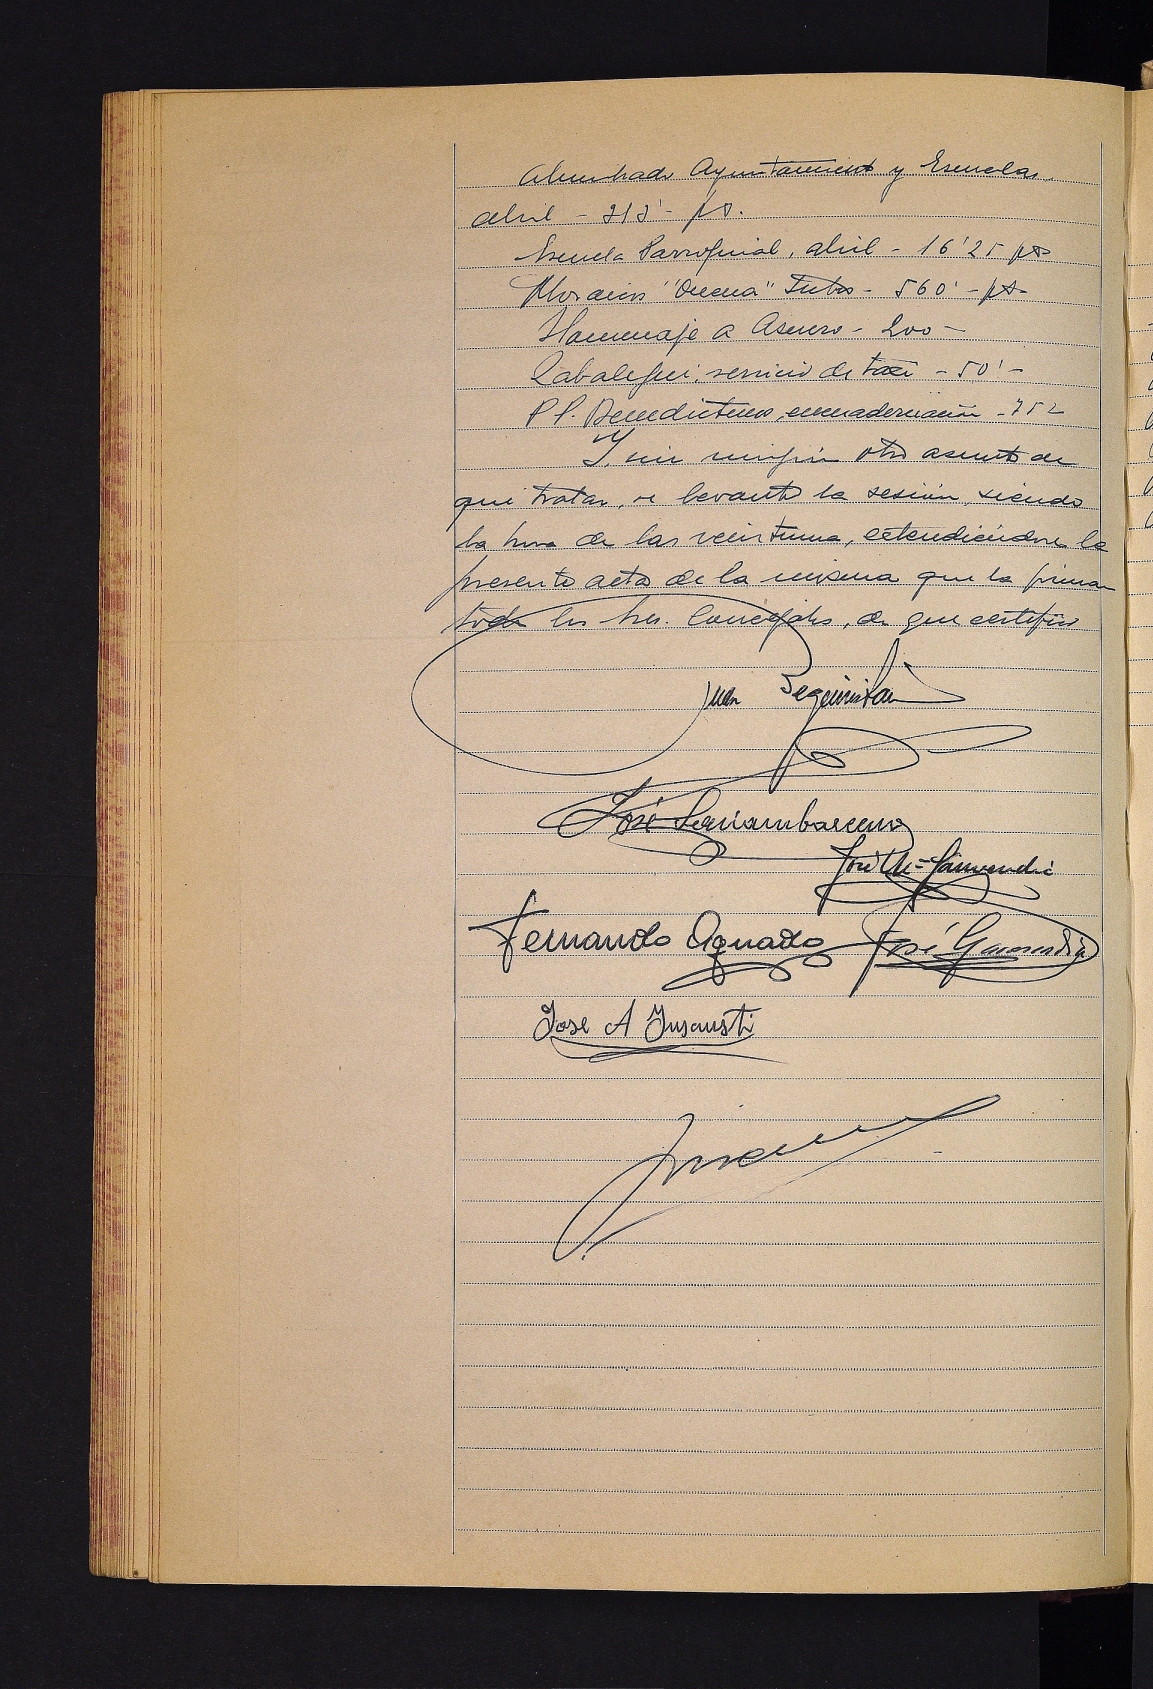 Alumbrado Ayuntamiento y Escuelas,
abril - 212'- pts.
Escuela Parroquial, abril - 16'25 pts
Mosaicos "Onena" Tubos - 560'- pts
Homenaje a Asuero - 200 -
Zabalegui, servicio de taxi - 50'-
P P. Benedictinos, encuadernación - 752
Y, sin ningún otro asunto de
que tratar, se levantó la sesión, siendo
la hora de las veintiuna, extendiéndose la
presente acta de la misma que la firman
todos los Sres. Concejales, de que certifico
Juan Beguiristain
José
José Mª Garmendia
Fernando Aguado José Garmendia
Jose A Insausti